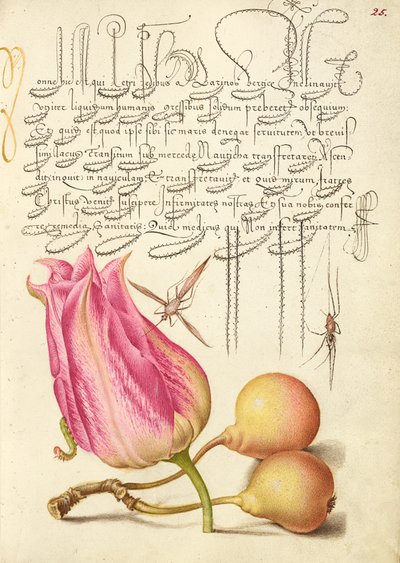 25.
Nonne hic est qui Petri pedibus a Marinos vertice Inclinauit
Vt iter liquidum humanis gressibus solidum preberet obsequium:
Et quid est quod ipse sibi sic maris denegat seruitutem: Vt breuis
similacus Transitum sub mercede Nauticha transfretaret: Ascen
dit inquit in nauiculam, Et transfretauit: et Quid mirum, fratres
Christus Venit suscipere Infirmitates nostras Et sua nobis confer
re remedia Sanitatis: Quia medicus qui Non infert Sanitatem